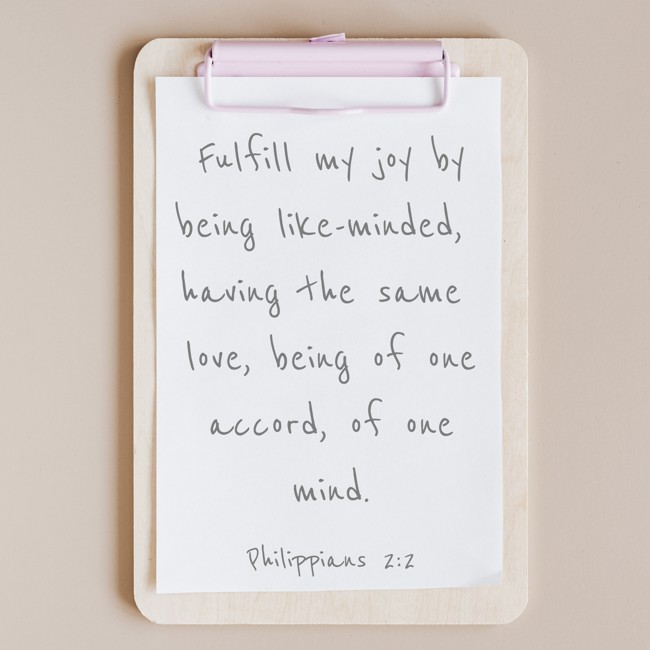 Fulfill my joy by
being like-minded,
having the same
love, being of one
accord, of one
mind.
Philippians 2:2